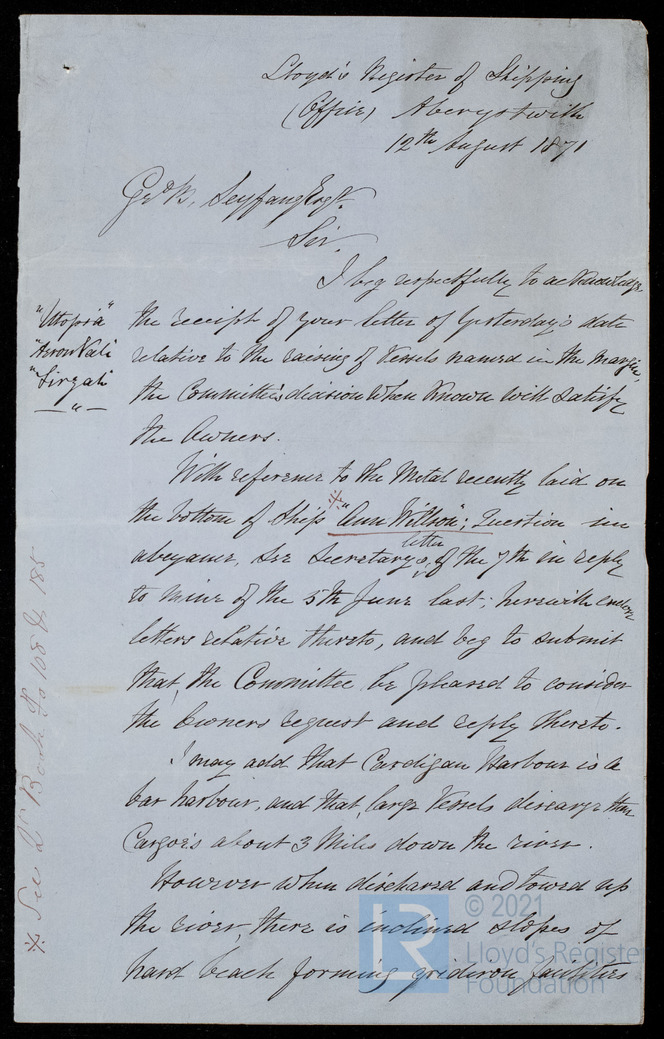 Lloyd's Register of Shipping
(Office) Aberystwith
12th August 1871
Geo B, Seyfang Esqr.
Sir.
I beg respectfully to acknowledge
"Utopia"
"Aeron Vale"
"Tirzah"
— " —
the receipt of your letter of Yesterday's date
relative to the raising of Vessels named in the margin,
the Committee's decision when Known will satisfy
the Owners.
With reference to the Metal recently laid on
the bottom of Ship's "Ann Wilson"; Question in
abeyance, see Secretary's letter of the 7th in reply
to mine of the 5th June last; herewith enclose
letters relative thereto, and beg to submit
that, the Committee be pleased to consider
the Owners request and reply thereto.
I may add that Cardigan Harbour is a
bar harbour, and that, large Vessels discarge their
Cargoe's about 3 Miles down the river.
However when discharged and towed up
the river, there is inclined slopes of
hard beach forming gridiron facilities
※ See Lr Book Fo 108 & 185
© 2021
LR
Lloyd's Register
Foundation